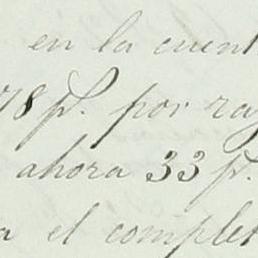 en la cuent
78 p. por raz
ahora 33 p.
a el complet